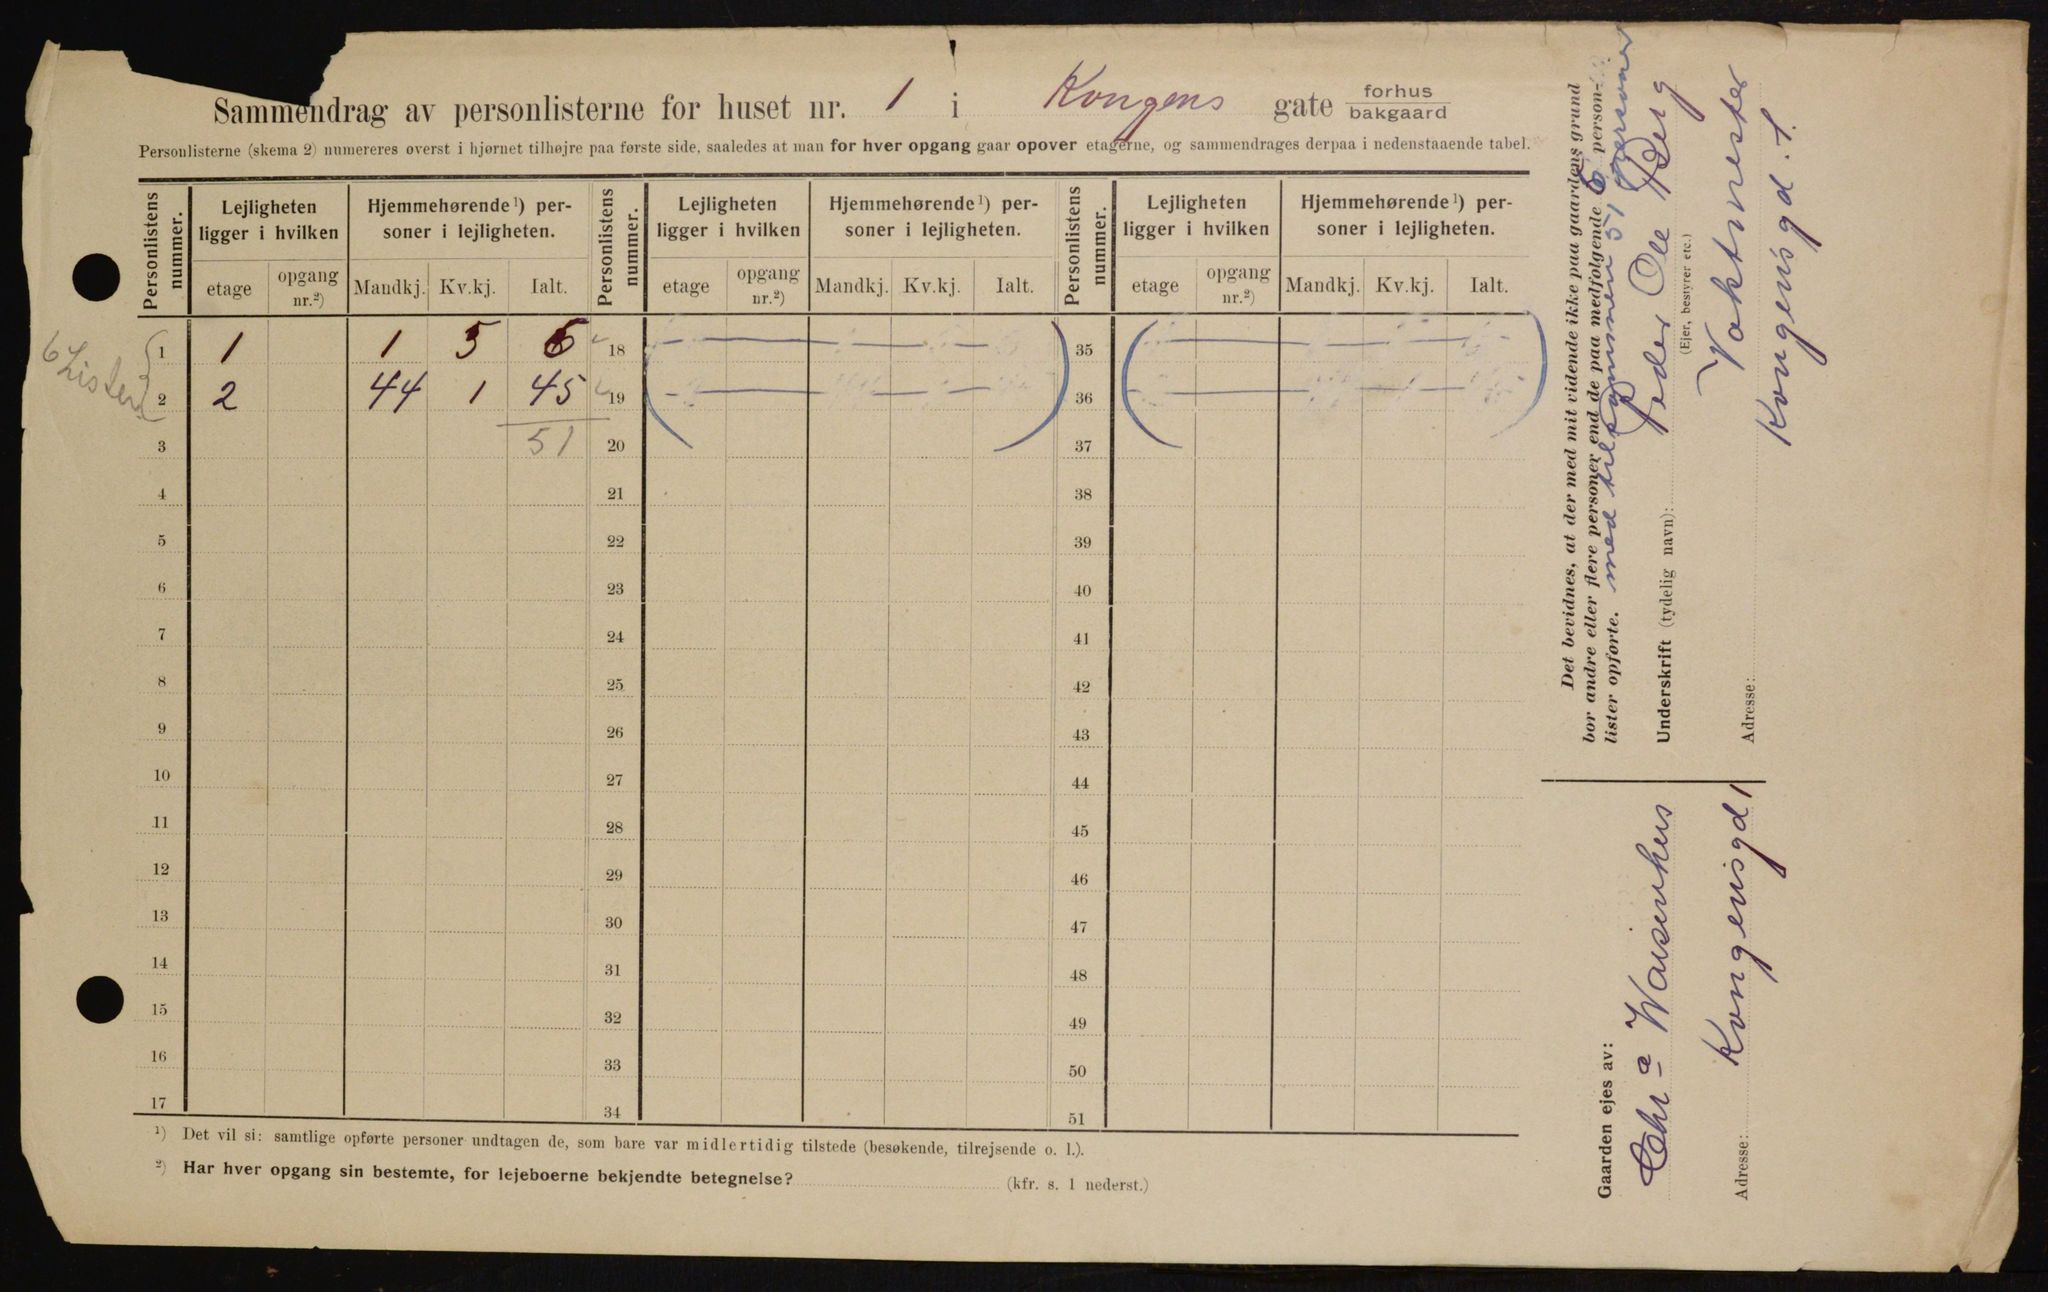 Sammendrag av personlisterne for huset nr. 1 i Kongens gate forhus bakgaard
Personlisterne (skema 2) numereres øverst i hjørnet tilhøjre paa første side, saaledes at man for hver opgang gaar opover etagerne, og sammendrages derpaa i nedenstaaende tabel.
Personlistens nummer. Lejligheten ligger i hvilken Hjemmehørende¹) personer i lejligheten. Personlistens nummer. Lejligheten ligger i hvilken Hjemmehørende¹) personer i lejligheten. Personlistens nummer. Lejligheten ligger i hvilken Hjemmehørende¹) personer i lejligheten.
etage opgang nr.²) Mandkj. Kv.kj. Ialt. etage opgang nr.²) Mandkj. Kv.kj. Ialt. etage opgang nr.²) Mandkj. Kv.kj. Ialt.
6 Lister
1 1 1 5 6 18 35
2 2 44 1 45 19 36
3 51 20 37
4 21 38
5 22 39
6 23 40
7 24 41
8 25 42
9 26 43
10 27 44
11 28 45
12 29 46
13 30 47
14 31 48
15 32 49
16 33 50
17 34 51
¹) Det vil si: samtlige opførte personer undtagen de, som bare var midlertidig tilstede (besøkende, tilrejsende o. l.).
²) Har hver opgang sin bestemte, for lejeboerne bekjendte betegnelse? (kfr. s. 1 nederst.)
Det bevidnes, at der med mit vidende ikke paa gaardens grund
bor andre eller flere personer end de paa medfølgende 6 person-
lister opførte. med tilsammen 51 personer
Underskrift (tydelig navn): Peder Ole Berg
(Ejer, bestyrer etc.)
Vaktmester
Adresse: Kongensgd. 1.
Gaarden ejes av:
Chr a Waisenhus
Adresse: Kongensgd 1